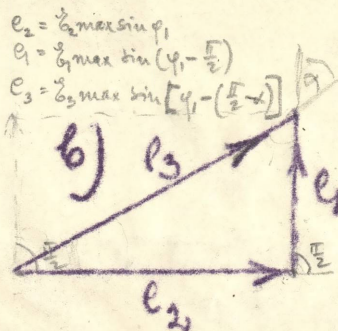 e₂ = ℰ₂ max sin φ₁
e₁ = ℰ₁ max sin (φ₁ - π/2)
e₃ = ℰ₃ max sin [φ₁ - (π/2 - α)]
α
б)
e₃
e₁
π/2
π/2
e₂